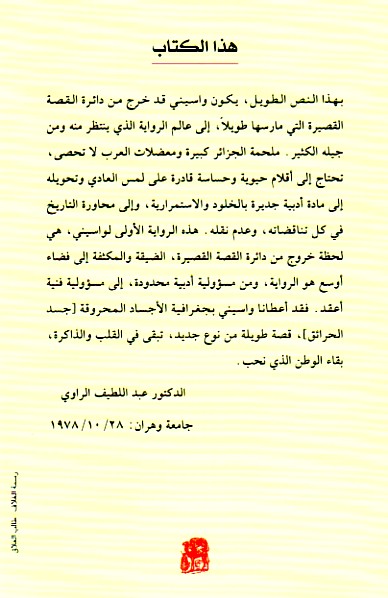 هذا الكتاب
بهذا النص الطويل، يكون واسيني قد خرج من دائرة القصة
القصيرة التي مارسها طويلاً، إلى عالم الرواية الذي ينتظر منه ومن
جيله الكثير. ملحمة الجزائر كبيرة ومعضلات العرب لا تحصى،
تحتاج إلى أقلام حيوية وحساسة قادرة على لمس العادي وتحويله
إلى مادة أدبية جديرة بالخلود والاستمرارية، وإلى محاورة التاريخ
في كل تناقضاته، وعدم نقله. هذه الرواية الأولى لواسيني، هي
لحظة خروج من دائرة القصة القصيرة، الضيقة والمكثفة إلى فضاء
أوسع هو الرواية، ومن مسؤولية أدبية محدودة، إلى مسؤولية فنية
أعقد. فقد أعطانا واسيني بجغرافية الأجساد المحروقة [جسد
الحرائق]، قصة طويلة من نوع جديد، تبقى في القلب والذاكرة،
بقاء الوطن الذي نحب.
الدكتور عبد اللطيف الراوي
جامعة وهران: ٢٨/ ١٠/ ١٩٧٨
الغلاف